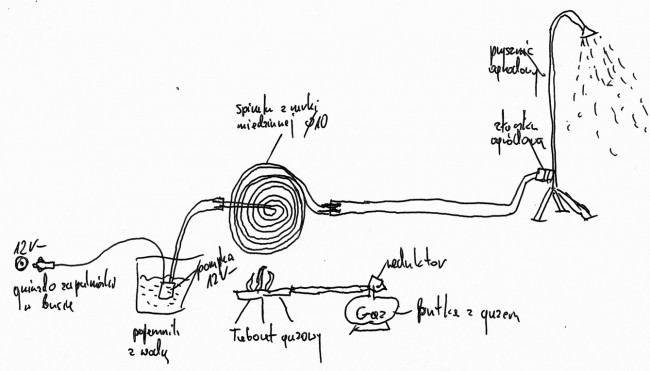 prysznic
ogrodowy
złączka
ogrodowa
Spirala z rurki
miedzianej ø10
12V-
gniazdo zapalniczki
w busie
pompka
12V-
pojemnik
z wodą
reduktor
Gaz
butla z gazem
Taboret gazowy